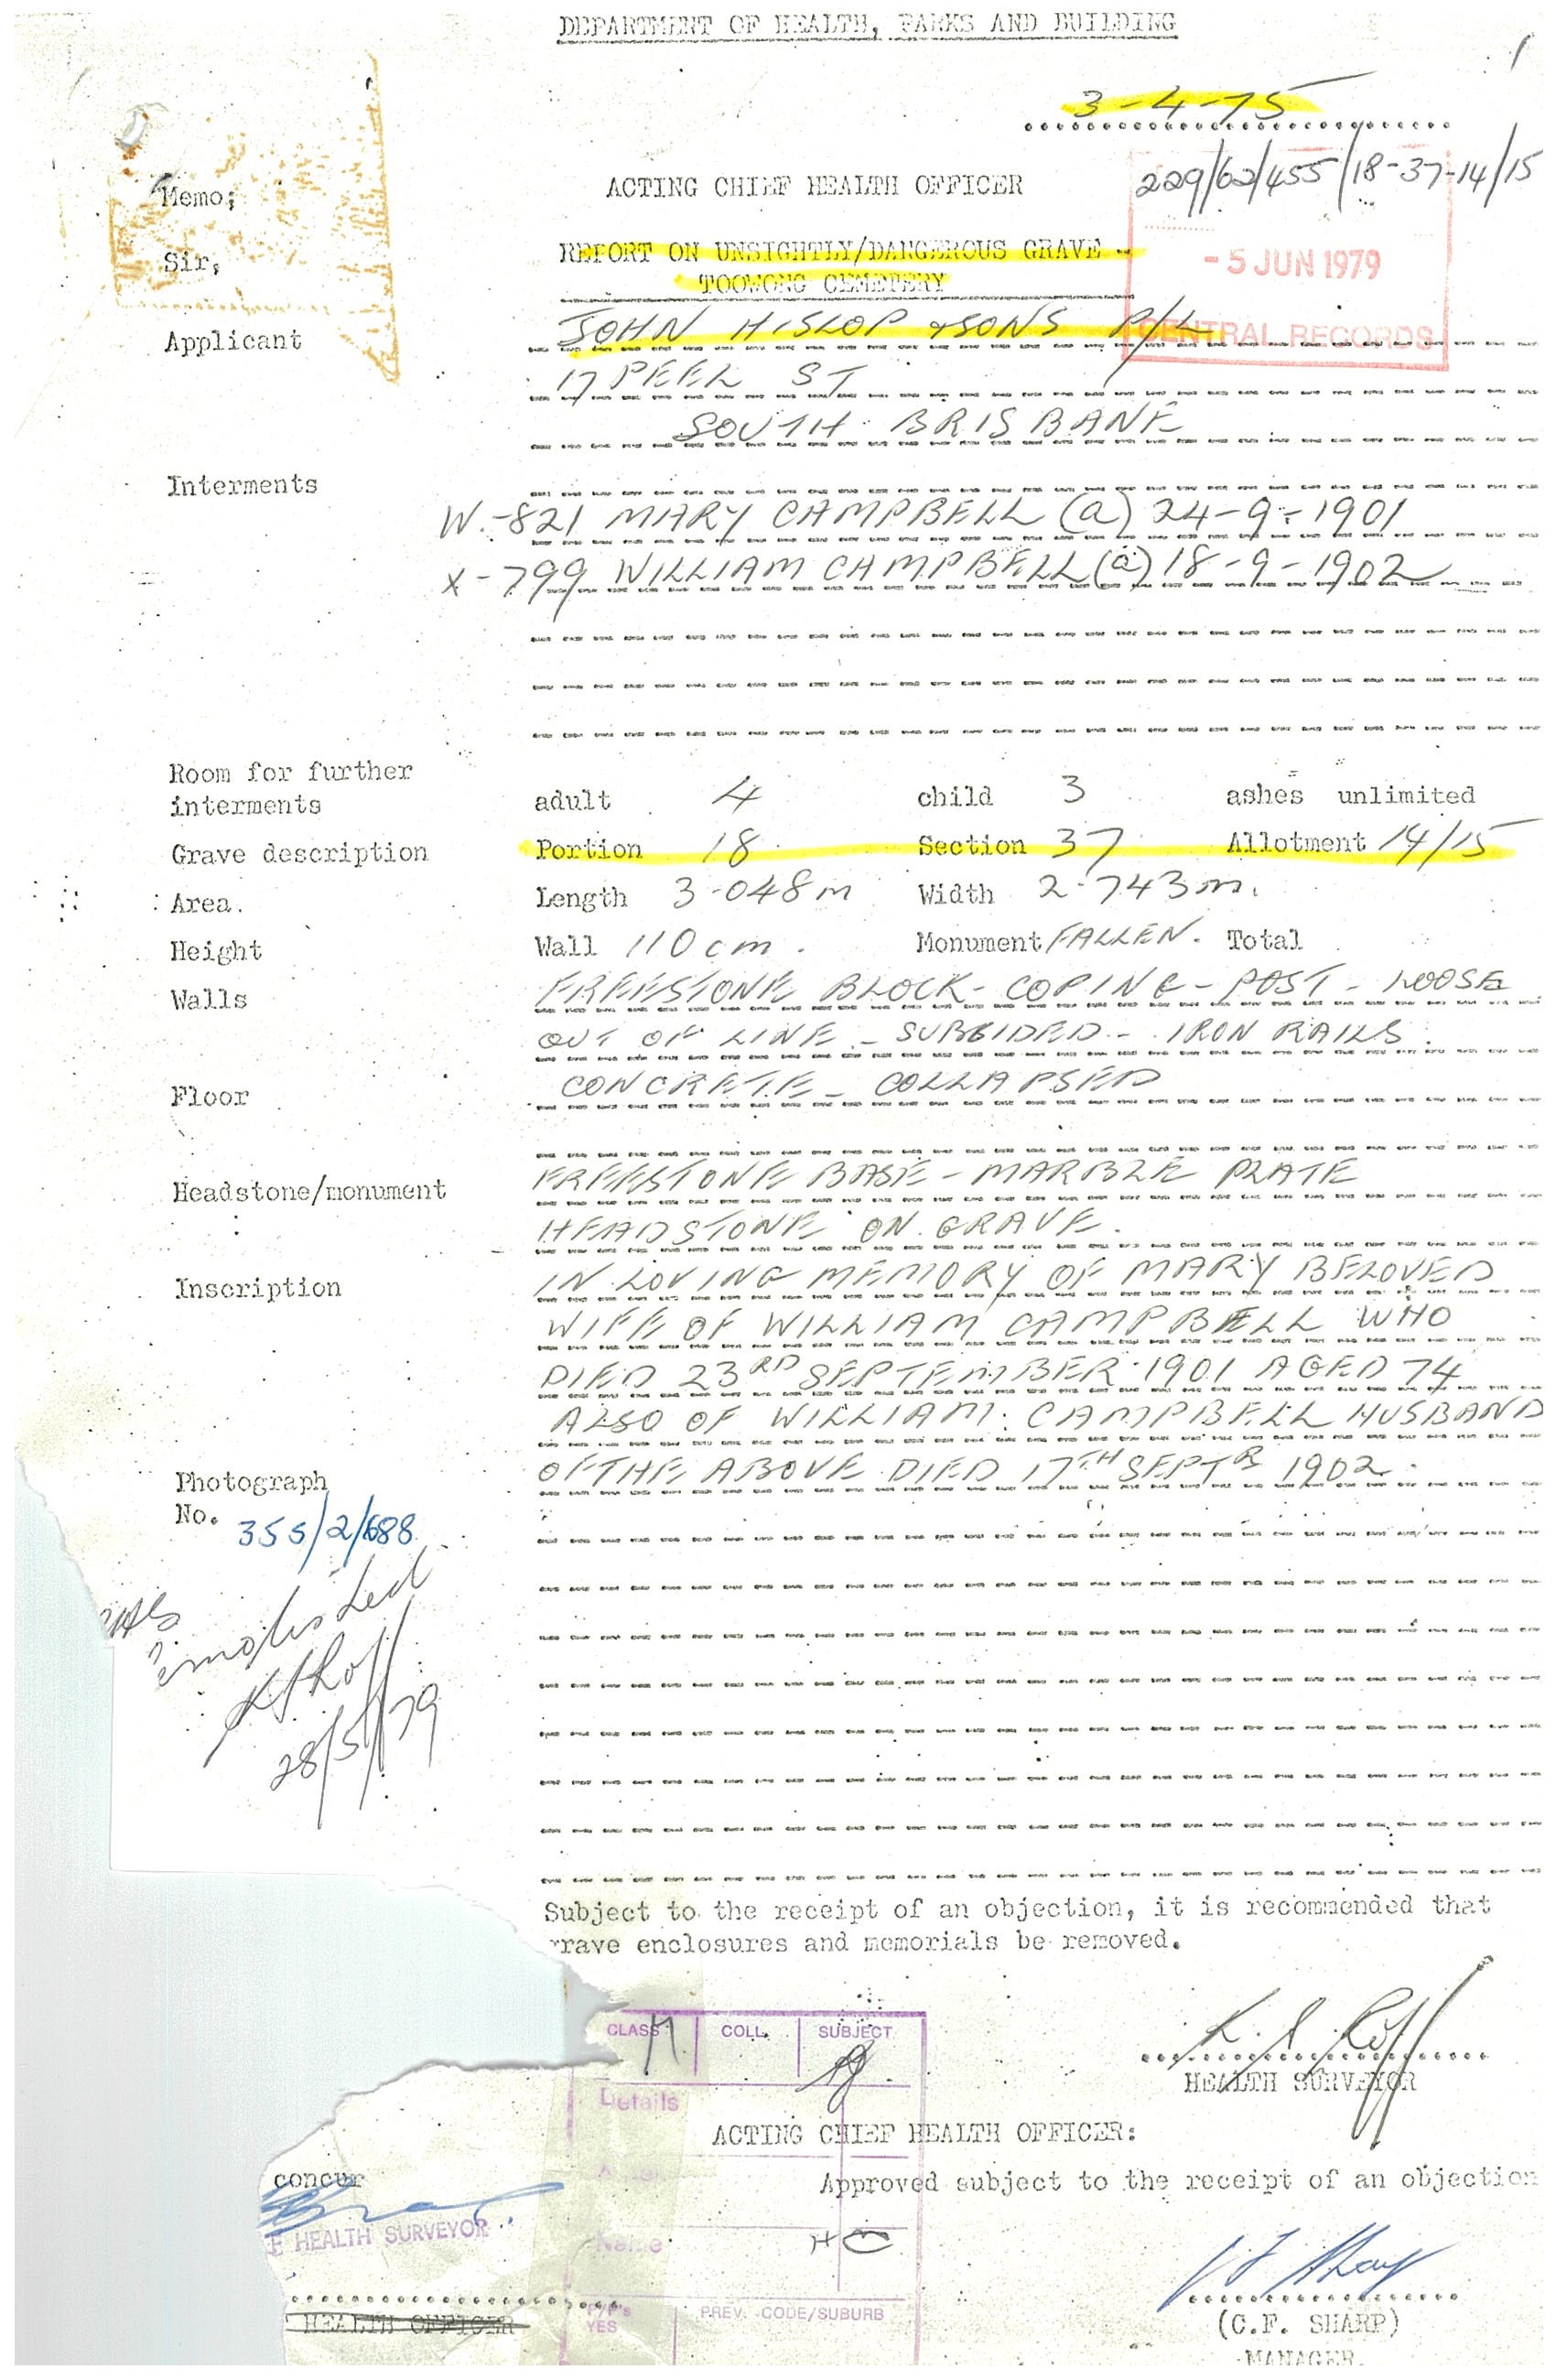 DEPARTMENT OF HEALTH, PARKS AND BUILDING
3-4-75
229/62/455/18-37-14/15
Memo; ACTING CHIEF HEALTH OFFICER
Sir, REPORT ON UNSIGHTLY/DANGEROUS GRAVE -
TOOWONG CEMETERY
- 5 JUN 1979
CENTRAL RECORDS
Applicant JOHN HISLOP & SONS P/L
17 PEEL ST
SOUTH BRISBANE
Interments
W-821 MARY CAMPBELL (a) 24-9-1901
X-799 WILLIAM CAMPBELL (a) 18-9-1902
Room for further
interments adult 4 child 3 ashes unlimited
Grave description Portion 18 Section 37 Allotment 14/15
Area. Length 3.048m Width 2.743m.
Height Wall 110cm. Monument FALLEN. Total
Walls FREESTONE BLOCK - COPING - POST - LOOSE
OUT OF LINE - SUBSIDED - IRON RAILS.
Floor CONCRETE - COLLAPSED
Headstone/monument FREESTONE BASE - MARBLE PLATE
HEADSTONE ON GRAVE.
Inscription IN LOVING MEMORY OF MARY BELOVED
WIFE OF WILLIAM CAMPBELL WHO
DIED 23RD SEPTEMBER 1901 AGED 74
ALSO OF WILLIAM CAMPBELL HUSBAND
OF THE ABOVE DIED 17TH SEPTR 1902.
Photograph
No. 355/2/688
28/5/79
Subject to the receipt of an objection, it is recommended that
rave enclosures and memorials be removed.
K. S. Roff
HEALTH SURVEYOR
CLASS COLL. SUBJECT
M
Details
ACTING CHIEF HEALTH OFFICER:
concur
Approved subject to the receipt of an objection
HEALTH SURVEYOR
Name
(C.F. SHARP)
MANAGER.
HEALTH OFFICER
YES PREV. CODE/SUBURB